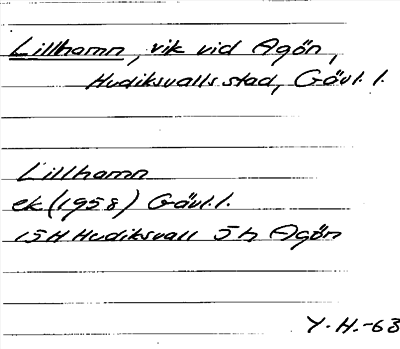 Lillhamn, vik vid Agön,
Hudiksvalls stad, Gävl. l.
Lillhamn
ek (1958) Gävl. l.
15H Hudiksvall 5h Agön
Y. H. -63